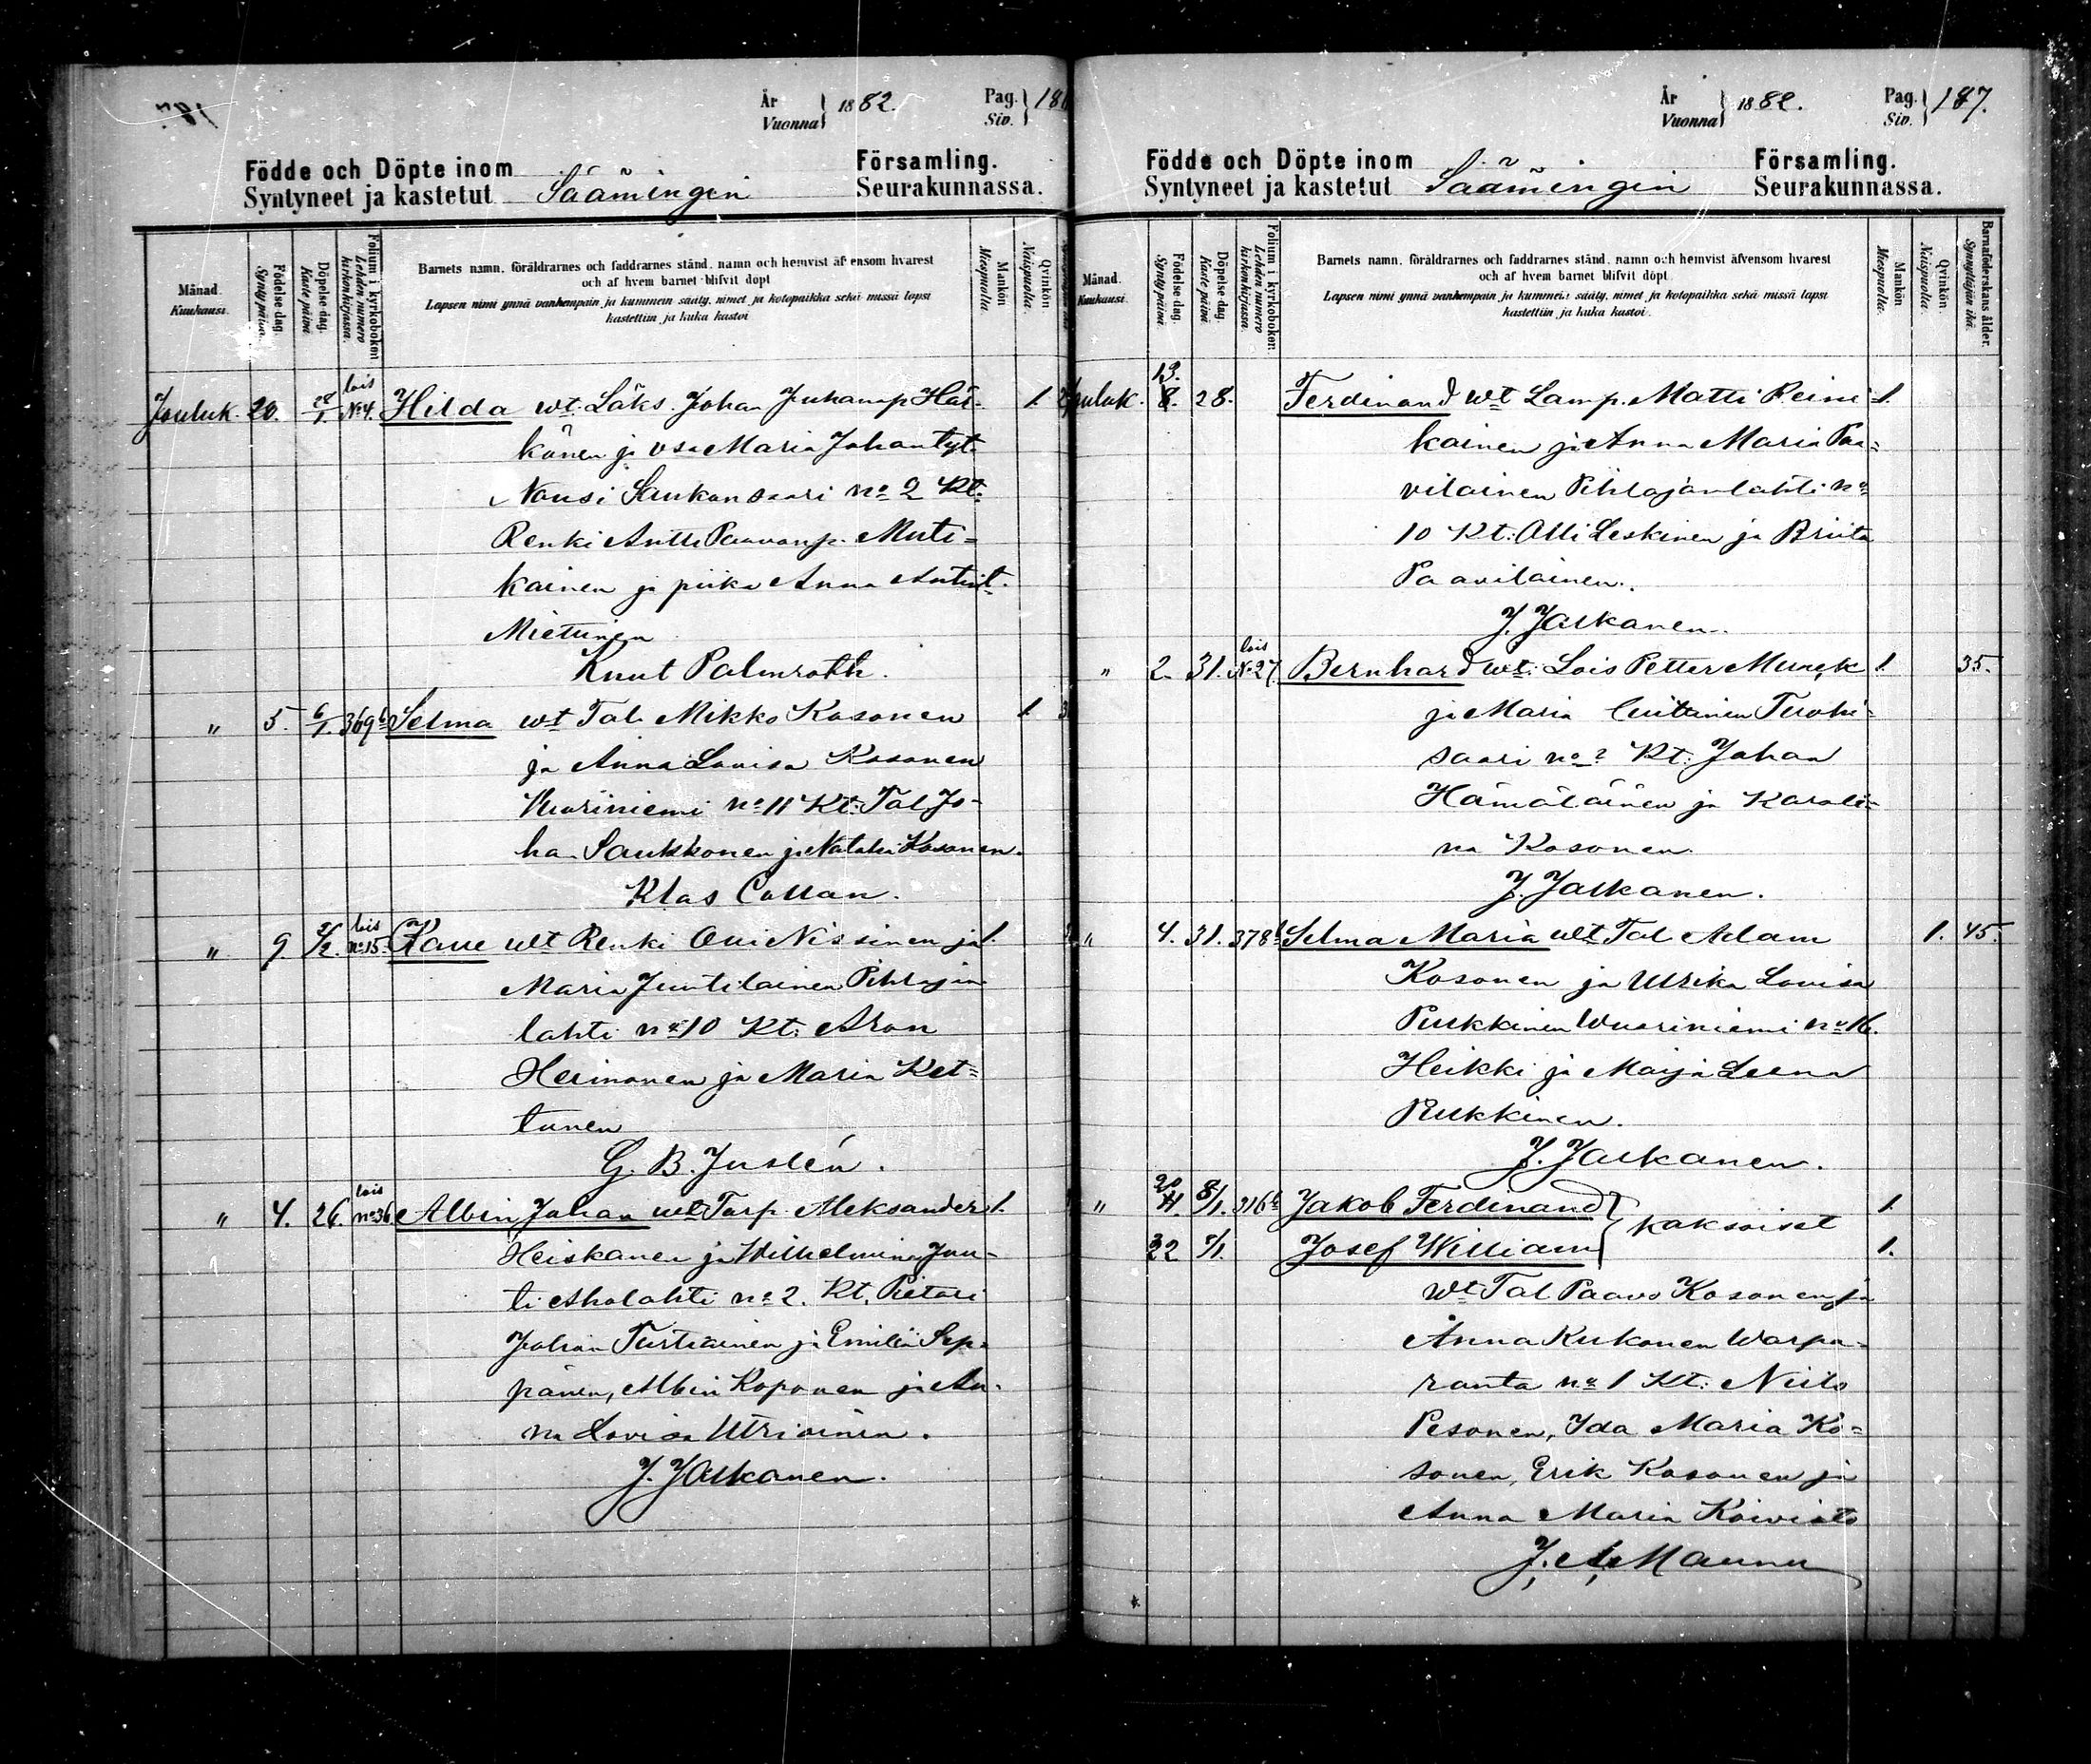 År Vuonna } 1882. Pag. Siv. } 186
Födde och Döpte inom Församling.
Syntyneet ja kastetut Säämingin Seurakunnassa.
Månad. Kuukausi. Födelse-dag. Synty päivä. Döpelse-dag. Kaste päivä. Folium i kyrkoboken Lehden numero kirkonkirjassa.
Barnets namn, föräldrarnes och faddrarnes stånd, namn och hemvist äfvensom hvarest
och af hvem barnet blifvit döpt
Lapsen nimi ynnä vanhempain ja kummein sääty, nimet ja kotopaikka sekä missä lapsi
kastettiin ja kuka kastoi
Mankön Miespuolia. Qvinkön Naispuolia.
Jouluk. 20. 28/1. lois No 4. Hilda wt. Läks. Johan Juhanap. Här- 1.
könen ja vsa Maria Johantyt.
Nousi Saukonsaari no 2 Kt.
Renki Antti Paavonp. Muti=
kainen ja piika Anna Antint.
Miettinen
Knut Palmroth.
" 5. 6/1. 369 b Selma wt Tal. Mikko Kosonen 1. 3
ja Anna Lovisa Kosonen
Vuoriniemi no 11 Kt. Tal. Jo-
han Saukkonen ja Natalia Kosonen.
Klas Collan.
" 9. 2/2. lois no 15. Kalle wt Renki Olli Nissinen ja 1.
Maria Juutilainen Pihlajan
lahti no 10 Kt: Aron
Heimonen ja Maria Ket=
tunen
G. B. Juslén.
" 4. 26. lois no 36. Albin Johan wt Torp. Aleksander 1.
Heiskanen ja Wilhelmina Juu-
ti Aholahti no 2. Kt. Pietari
Johan Turtiainen ja Emilia Sep-
pänen, Albin Koponen ja An-
na Lovisa Utriainen.
J. Jalkanen.
År Vuonna } 1882. Pag. Siv. } 187.
Födde och Döpte inom Församling.
Syntyneet ja kastetut Säämingin Seurakunnassa.
Månad. Kuukausi. Födelse-dag. Synty päivä. Döpelse-dag. Kaste päivä Folium i kyrkoboken Lehden numero kirkonkirjassa.
Barnets namn, föräldrarnes och faddrarnes stånd, namn och hemvist äfvensom hvarest
och af hvem barnet blifvit döpt.
Lapsen nimi ynnä vanhempain ja kummein sääty, nimet ja kotopaikka sekä missä lapsi
kastettiin ja kuka kastoi.
Mankön Miespuolia. Qvinkön. Naispuolia. Barnaföderskans ålder. Synnyttäjän ikä.
Jouluk. 13. 8. 28. Ferdinand wt Lamp. Matti Reini- 1.
kainen ja Anna Maria Paa=
vilainen Pihlajanlahti no
10 Kt: Olli Leskinen ja Briita
Paavilainen.
J. Jalkanen.
" 2. 31. lois No 27. Bernhard wt. Lois Petter Munck 1. 35.
ja Maria Tuohi-
saari no 2 Kt: Johan
Hämäläinen ja Karoli-
na Kosonen.
J. Jalkanen.
" 4. 31. 378 b Selma Maria wt Tal Adam 1. 45.
Kosonen ja Ulrika Lovisa
Pukkinen Wuoriniemi no 16.
Heikki ja Maija Leena
Pukkinen.
J. Jalkanen.
" 20 8/1. 316 b Jakob Ferdinand } kaksoiset 1.
22 7/1. Josef William 1.
wt Tal Paavo Kosonen ja
Anna Kukonen Warpa-
ranta no 1 Kt: Niilo
Pesonen, Ida Maria Ko=
sonen, Erik Kosonen ja
Anna Maria Koivisto
J. A. Maunu